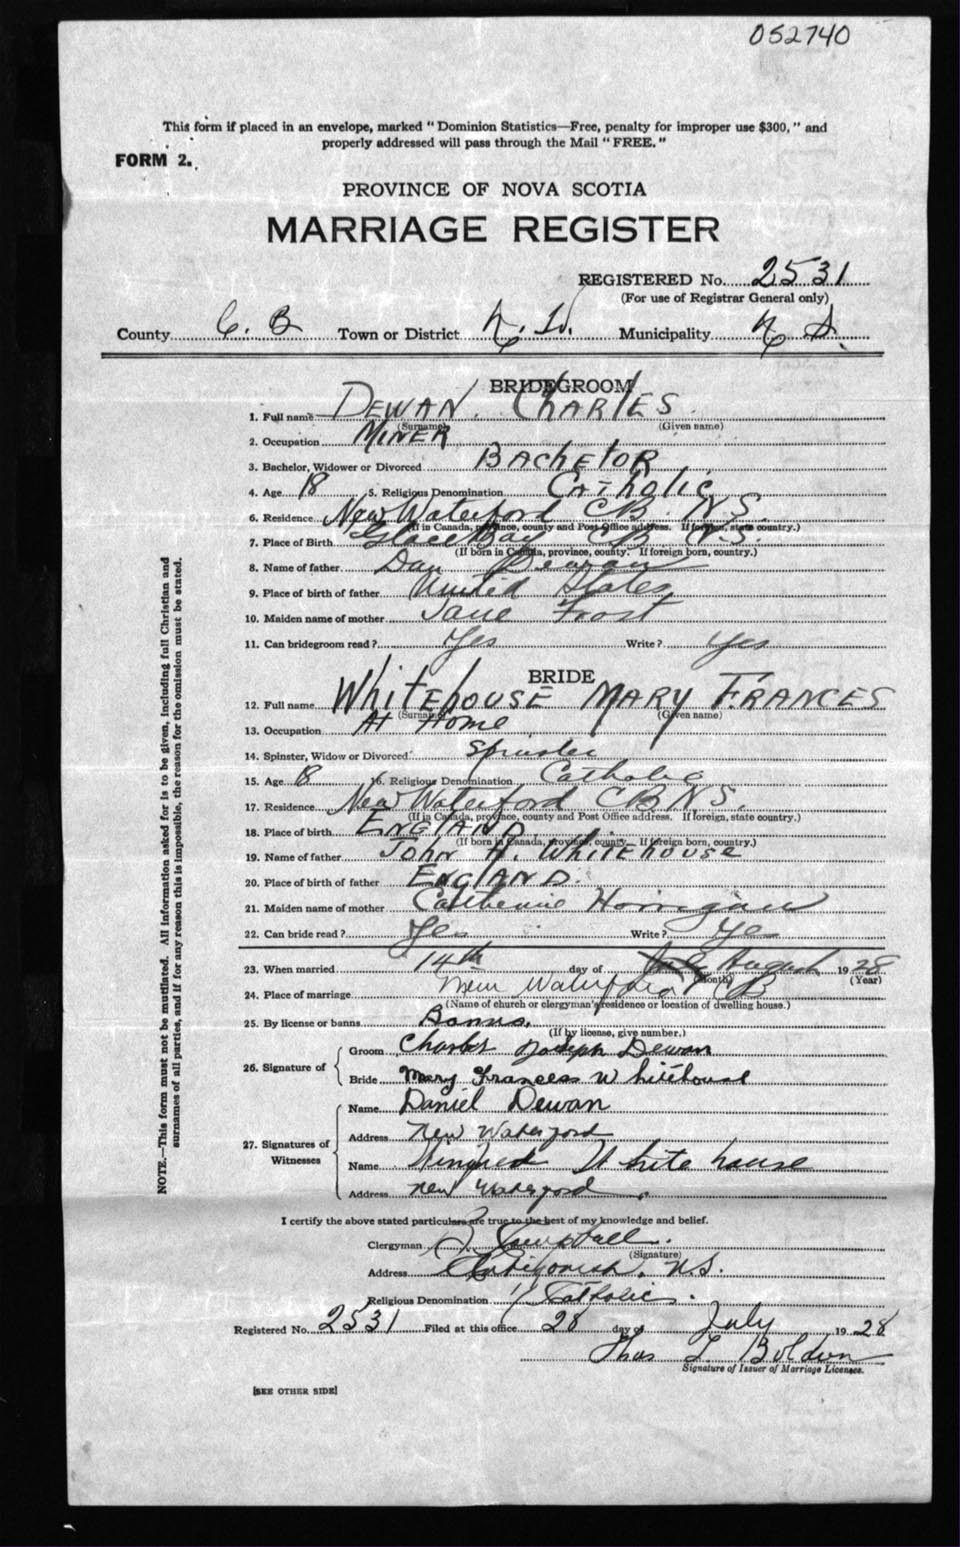 052740
This form if placed in an envelope, marked "Dominion Statistics—Free, penalty for improper use $300," and
properly addressed will pass through the Mail "FREE."
FORM 2.
PROVINCE OF NOVA SCOTIA
MARRIAGE REGISTER
REGISTERED No. 2531
(For use of Registrar General only)
County C. B Town or District N. W. Municipality N S.
BRIDEGROOM
1. Full name DEWAN. CHARLES.
(Surname) (Given name)
2. Occupation MINER
3. Bachelor, Widower or Divorced BACHELOR
4. Age 18 5. Religious Denomination Catholic
6. Residence New Waterford CB. N.S.
(If in Canada, province, county and Post Office address. If foreign, state country.)
7. Place of Birth Glace Bay CB N.S.
(If born in Canada, province, county. If foreign born, country.)
8. Name of father Dan Dewan
9. Place of birth of father United States
10. Maiden name of mother Jane Frost
11. Can bridegroom read? Yes Write? yes
BRIDE
12. Full name WhiteHOUSE MARY FRANCES
(Surname) (Given name)
13. Occupation At Home
14. Spinster, Widow or Divorced Spinster
15. Age 18 16. Religious Denomination Catholic
17. Residence New Waterford CB. N.S.
(If in Canada, province, county and Post Office address. If foreign, state country.)
18. Place of birth ENGLAND
(If born in Canada, province, county. If foreign born, country.)
19. Name of father John H. Whitehouse
20. Place of birth of father ENGLAND.
21. Maiden name of mother Catherine Horrigan
22. Can bride read? Yes Write? Yes
23. When married 14th day of August 1928
(Month) (Year)
24. Place of marriage New Waterford CB
(Name of church or clergyman's residence or location of dwelling house.)
25. By license or banns Banns.
(If by license, give number.)
26. Signature of
Groom Charles Joseph Dewan
Bride Mary Frances Whitehouse
27. Signatures of Witnesses
Name Daniel Dewan
Address New Waterford
Name Winifred Whitehouse
Address New Waterford.
I certify the above stated particulars are true to the best of my knowledge and belief.
Clergyman Campbell.
(Signature)
Address Antigonish, N.S.
Religious Denomination Catholic.
Registered No. 2531 Filed at this office 28 day of July 1928
Thos L Boldon
Signature of Issuer of Marriage Licenses.
[SEE OTHER SIDE]
NOTE.—This form must not be mutilated. All information asked for is to be given, including full Christian and
surnames of all parties, and if for any reason this is impossible, the reason for the omission must be stated.